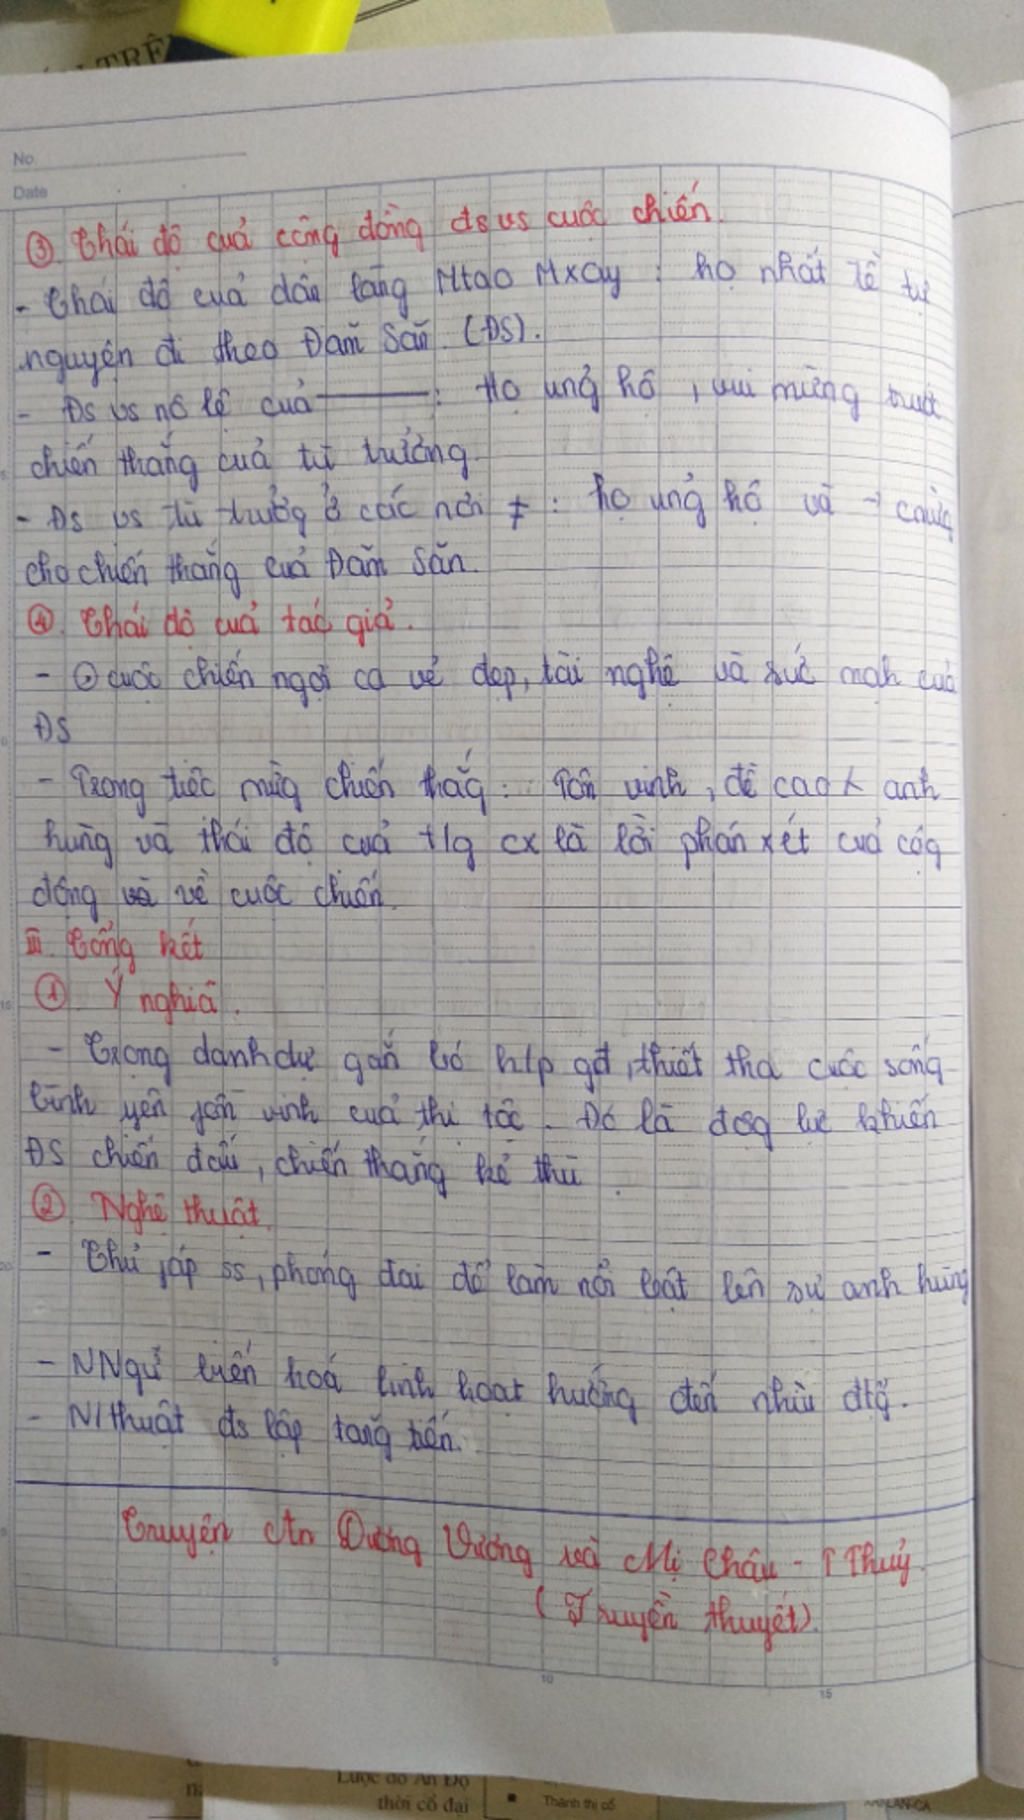 TRÊ
No
Date
③. Thái độ của cộng đồng đs vs cuộc chiến.
- Thái độ của dân làng Mtao Mxây : họ nhất tề tự
nguyện đi theo Đam Săn. (ĐS).
- Đs vs nô lệ của ———: Họ ủng hộ, vui mừng trước
chiến thắng của tù trưởng.
- Đs vs tù trưởng ở các nơi ≠ : họ ủng hộ và
cho chiến thắng của Đam Săn.
④. Thái độ của tác giả.
- cuộc chiến ngợi ca vẻ đẹp, tài nghệ và sức mạh của
ĐS
- Trong tiệc mừg chiến thắg : Tôn vinh, đề cao anh
hùng và thái độ của t/g cx là lời phán xét của cộg
đồng về cuộc chiến.
III. Tổng kết
① Ý nghĩa.
- Trọng danh dự gắn bó h/p gđ, thiết tha cuộc sống
bình yên fồn vinh của thị tộc. Đó là độg lực khiến
ĐS chiến đấu, chiến thắng kẻ thù.
② Nghệ thuật.
- Thủ fáp ss, phóng đại để làm nổi bật lên sự anh hùng
- NNgữ biến hoá linh hoạt hướng đến nhiù đtg.
- N/thuật đs lập tăng tiến.
Truyện An Dương Vương và Mị Châu - T Thuỷ.
(Truyền thuyết).
5
10
15
Lược đồ Ấn Độ
thời cổ đại
Thành thị cổ